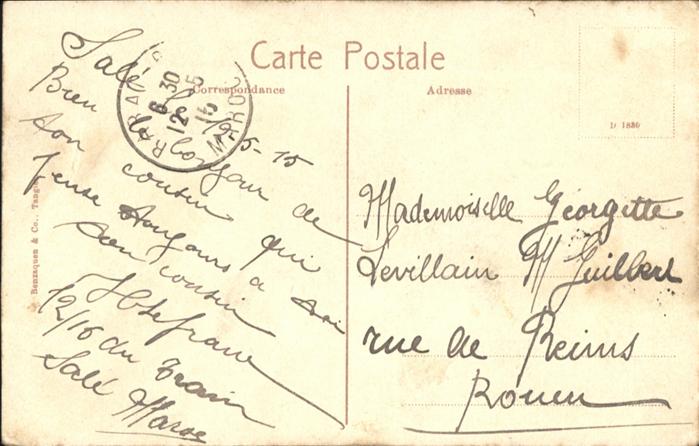 Carte Postale
Correspondance
Adresse
D 1830
RABAT
MAROC
6 30
12 5
15
Salé le 12-5-15
Bien le bonjour de
ton cousin qui
pense toujours a toi
Son cousin
12/16 du train
Salé Maroc
Mademoiselle Georgette
Levillain M Guilbert
rue de Reims
Rouen
Benzaquen & Co., Tanger